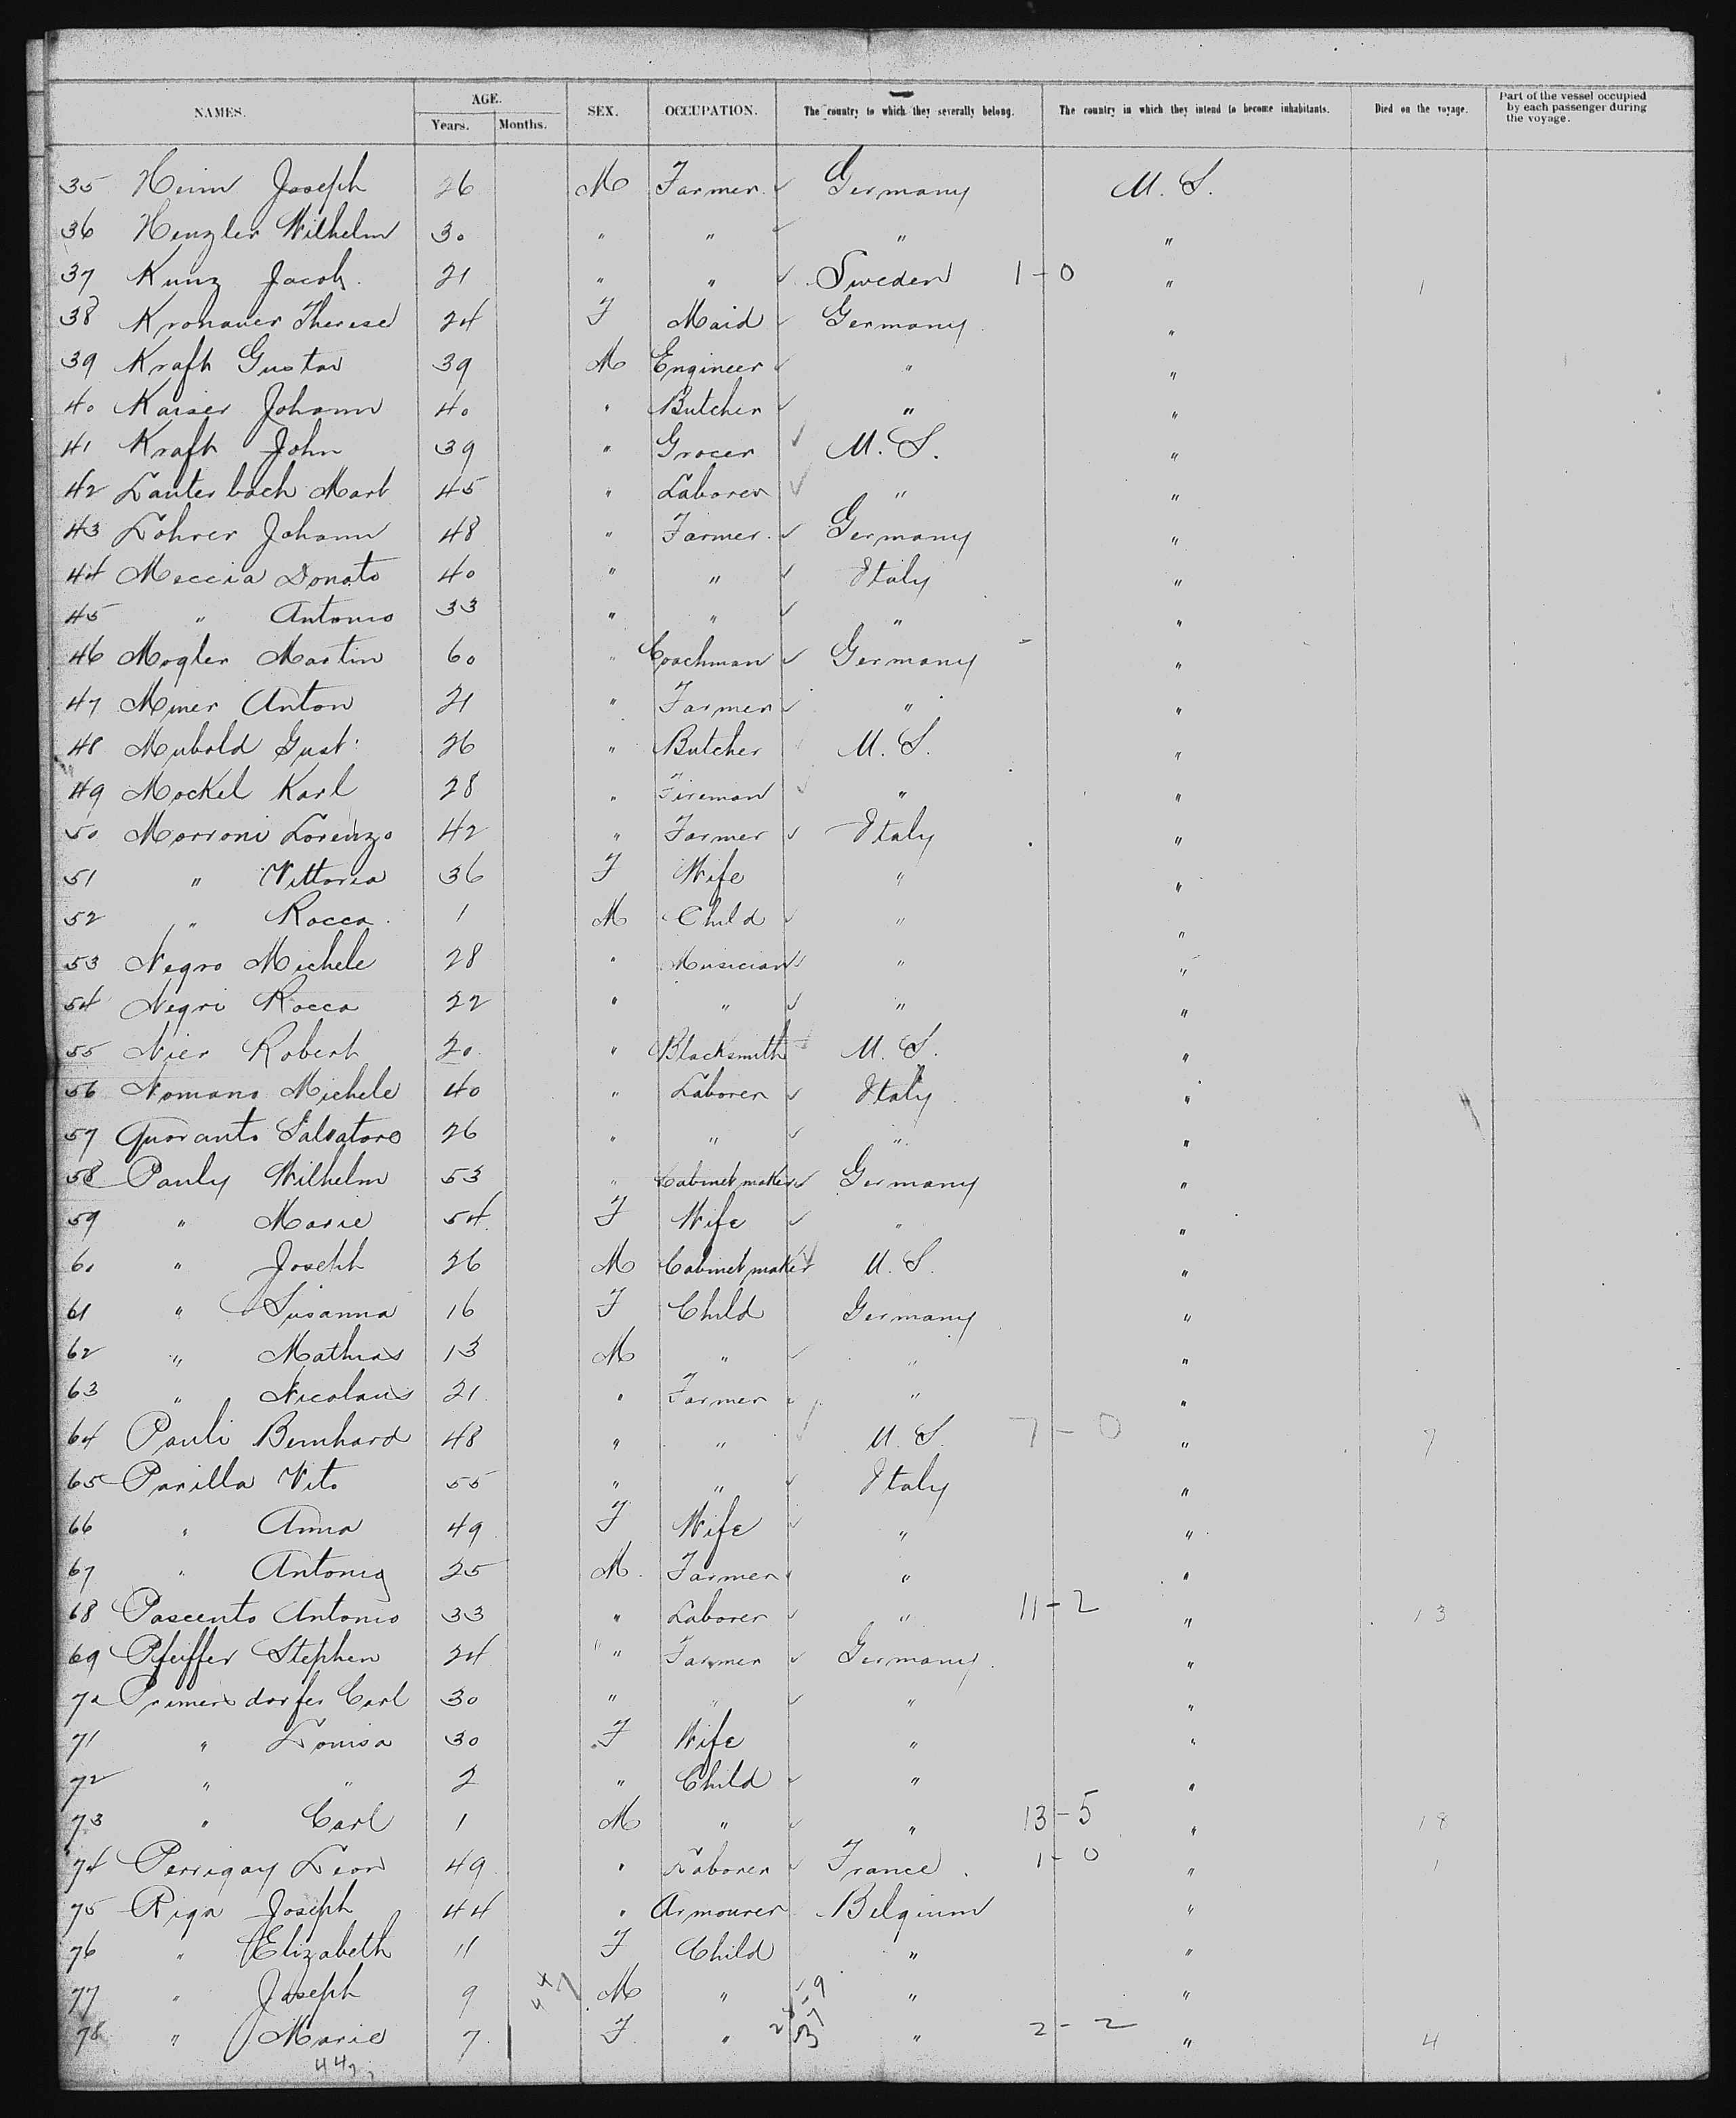 NAMES. AGE. SEX. OCCUPATION. The country to which they severally belong. The country in which they intend to become inhabitants. Died on the voyage. Part of the vessel occupied by each passenger during the voyage.
Years. Months.
35 Heim Joseph 26 M Farmer Germany U. S.
36 Henzler Wilhelm 30 " " " "
37 Kunz Jacob 21 " " Sweden 1-0 " 1
38 Kronauer Therese 24 F Maid Germany "
39 Kraft Gustav 39 M Engineer " "
40 Kaiser Johann 40 " Butcher " "
41 Kraft John 39 " Grocer U. S. "
42 Lauterbach Mart 45 " Laborer " "
43 Lohrer Johann 48 " Farmer Germany "
44 Meccia Donato 40 " " Italy "
45 " Antonio 33 " " " "
46 Mogler Martin 60 " Coachman Germany "
47 Miner Anton 21 " Farmer " "
48 Mubold Gust. 26 " Butcher U. S. "
49 Mockel Karl 28 " Fireman " "
50 Morroni Lorenzo 42 " Farmer Italy "
51 " Vittoria 36 F Wife " "
52 " Rocco 1 M Child " "
53 Negro Michele 28 " Musician " "
54 Negri Rocco 22 " " " "
55 Nier Robert 20 " Blacksmith U. S. "
56 Nomano Michele 40 " Laborer Italy "
57 Quoranto Salvatore 26 " " " "
58 Pauly Wilhelm 53 " Cabinetmaker Germany "
59 " Marie 54 F Wife " "
60 " Joseph 26 M Cabinetmaker U. S. "
61 " Susanna 16 F Child Germany "
62 " Mathias 13 M " " "
63 " Nicolaus 21 " Farmer " "
64 Pauli Bernhard 48 " " U. S. 7-0 " 7
65 Parilla Vito 55 " " Italy "
66 " Anna 49 F Wife " "
67 " Antonio 25 M Farmer " "
68 Pascento Antonio 33 " Laborer " 11-2 " 13
69 Pfeiffer Stephen 24 " Farmer Germany "
70 Primersdorfer Carl 30 " " " "
71 " Louisa 30 F Wife " "
72 " " 2 " Child " "
73 " Carl 1 M " " 13-5 " 18
74 Perrigay Leon 49 " Laborer France 1-0 " 1
75 Riga Joseph 44 " Armourer Belgium "
76 " Elizabeth 11 F Child " "
77 " Joseph 9 M " " "
78 " Marie 7 F " " 2-2 " 4